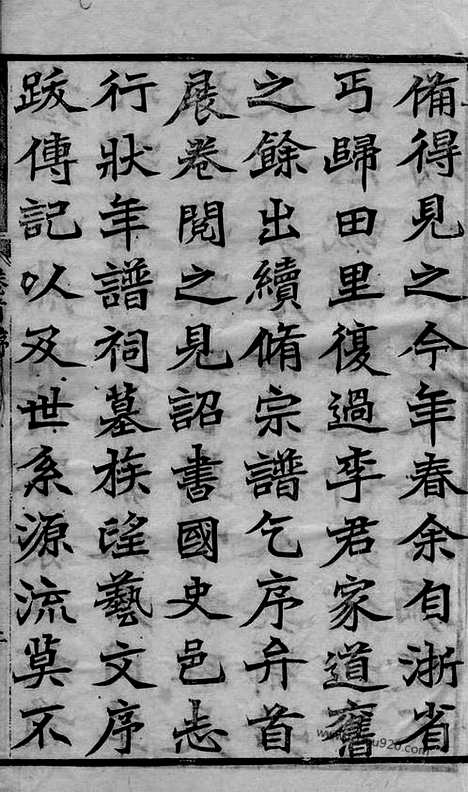 備得見之今年春余自浙省
丐歸田里復過李君家道舊
之餘出續脩宗譜乞序弁首
展卷閱之見詔書國史邑志
行狀年譜祠墓族望藝文序
跋傳記以及世系源流莫不